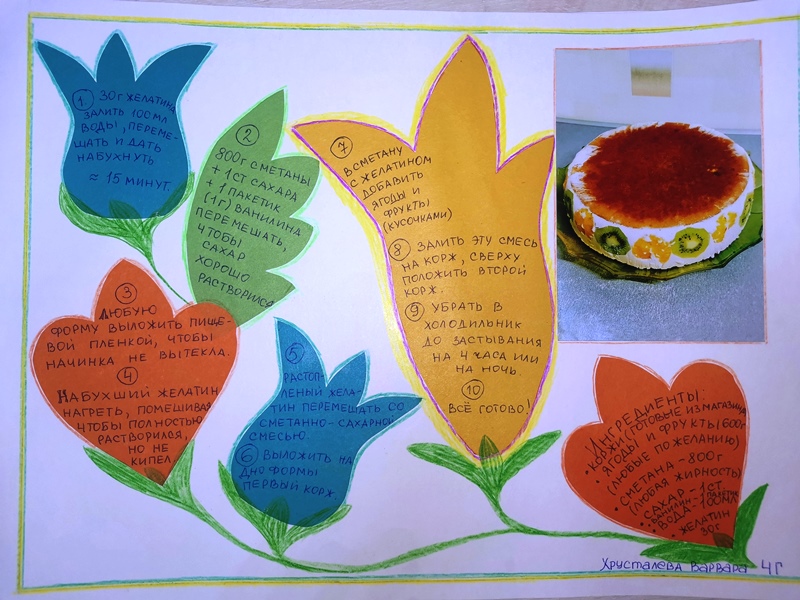 ① 30г ЖЕЛАТИНА
ЗАЛИТЬ 100МЛ
ВОДЫ, ПЕРЕМЕ-
ШАТЬ И ДАТЬ
НАБУХНУТЬ
≈ 15 МИНУТ.
②
800г СМЕТАНЫ
+ 1СТ САХАРА
+ 1 ПАКЕТИК
(1г) ВАНИЛИНА
ПЕРЕМЕШАТЬ,
ЧТОБЫ
САХАР
ХОРОШО
РАСТВОРИЛСЯ
③
ЛЮБУЮ
ФОРМУ ВЫЛОЖИТЬ ПИЩЕ-
ВОЙ ПЛЕНКОЙ, ЧТОБЫ
НАЧИНКА НЕ ВЫТЕКЛА.
④
НАБУХШИЙ ЖЕЛАТИН
НАГРЕТЬ, ПОМЕШИВАЯ
ЧТОБЫ ПОЛНОСТЬЮ
РАСТВОРИЛСЯ,
НО НЕ
КИПЕЛ
⑤
РАСТОП-
ЛЕНЫЙ ЖЕЛА-
ТИН ПЕРЕМЕШАТЬ СО
СМЕТАННО-САХАРНОЙ
СМЕСЬЮ.
⑥ ВЫЛОЖИТЬ НА
ДНО ФОРМЫ
ПЕРВЫЙ КОРЖ
⑦
В СМЕТАНУ
С ЖЕЛАТИНОМ
ДОБАВИТЬ
ЯГОДЫ И
ФРУКТЫ
(КУСОЧКАМИ)
⑧ ЗАЛИТЬ ЭТУ СМЕСЬ
НА КОРЖ, СВЕРХУ
ПОЛОЖИТЬ ВТОРОЙ
КОРЖ.
⑨ УБРАТЬ В
ХОЛОДИЛЬНИК
ДО ЗАСТЫВАНИЯ
НА 4 ЧАСА ИЛИ
НА НОЧЬ.
⑩
ВСЁ ГОТОВО!
ИНГРЕДИЕНТЫ:
• КОРЖИ (ГОТОВЫЕ ИЗ МАГАЗИНА)
• ЯГОДЫ И ФРУКТЫ (600г
(ЛЮБЫЕ ПО ЖЕЛАНИЮ)
• СМЕТАНА - 800г
(ЛЮБАЯ ЖИРНОСТЬ)
• САХАР - 1 СТ.
• ВАНИЛИН - 1 ПАКЕТИК
• ВОДА - 100МЛ
• ЖЕЛАТИН
30г
Хрусталева Варвара 4Г